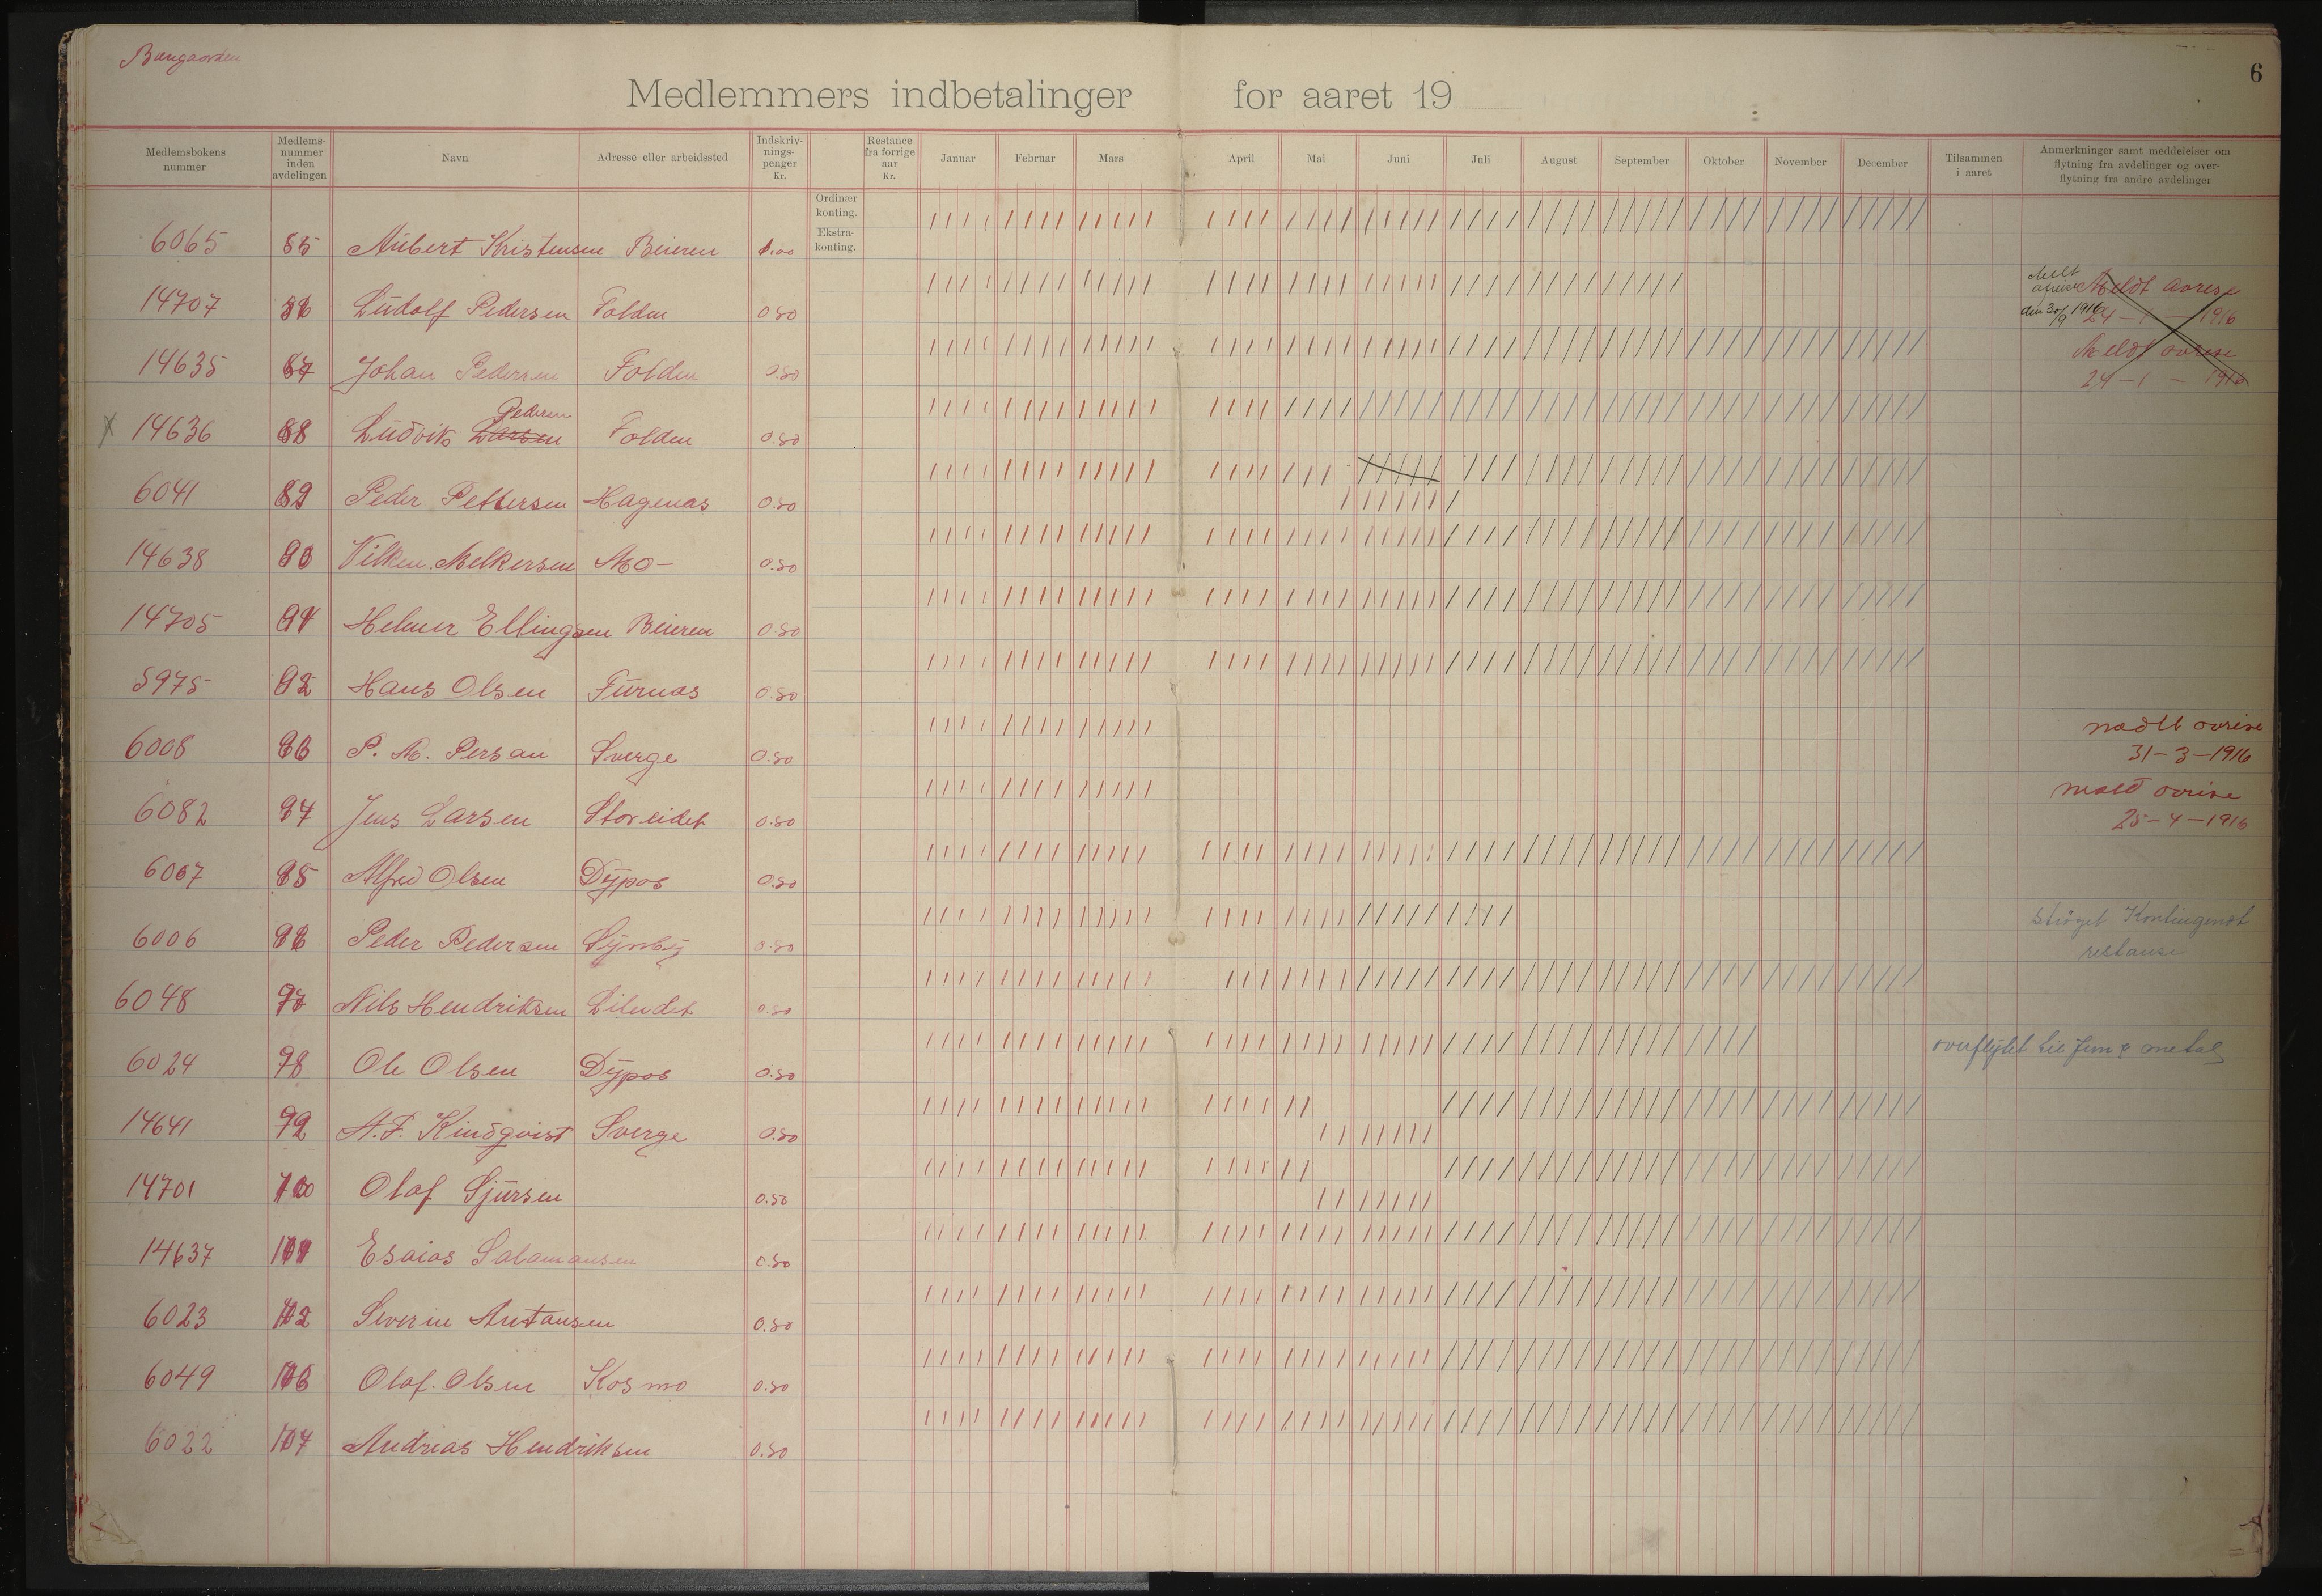 6
Medlemmers indbetalinger for aaret 19
Medlemsbokens nummer
Medlems-nummer inden avdelingen
Navn
Adresse eller arbeidssted
Indskriv-nings-penger Kr.
Restance fra forrige aar Kr.
Januar
Februar
Mars
April
Mai
Juni
Juli
August
September
Oktober
November
December
Tilsammen i aaret
Anmerkninger samt meddelelser om flytning fra avdelinger og over-flytning fra andre avdelinger
Ordinær konting.
Ekstra-konting.
6065 85 Aubert Kristensen Beieren 1.00
14707 86 Ludolf Pedersen Folden 0.50 Meldt avreise 24-1-1916
den 30/9 1916
14635 87 Johan Pedersen Folden 0.50 Meldt avreise 24-1-1916
X 14636 88 Ludvik Larsen Pedersen Folden 0.50
6041 89 Peder Pettersen Hagenas 0.50
14638 90 Vilken Melkersen Mo- 0.50
14705 91 Helmer Ellingsen Beieren 0.50
5975 92 Hans Olsen Furnas 0.50
6008 93 P. M. Persau Sverge 0.50 31-3-1916
6082 94 Jens Larsen Storeidet 0.50 25-4-1916
6007 95 Alfred Olsen Dypos 0.50
6006 96 Peder Pedersen 0.50 strøget Kontingendt restanse
6048 97 Nils Hendriksen 0.50
6024 98 Ole Olsen Dypos 0.50 overflytet til Jern & metal
14641 99 A.F. Kindqvist Sverge 0.50
14701 100 Olaf Sjursen 0.50
14637 101 Esaias Salamansen 0.50
6023 102 Severin Antansen 0.50
6049 103 Olaf. Olsen Kosmo 0.50
6022 104 Andreas Hendriksen 0.50